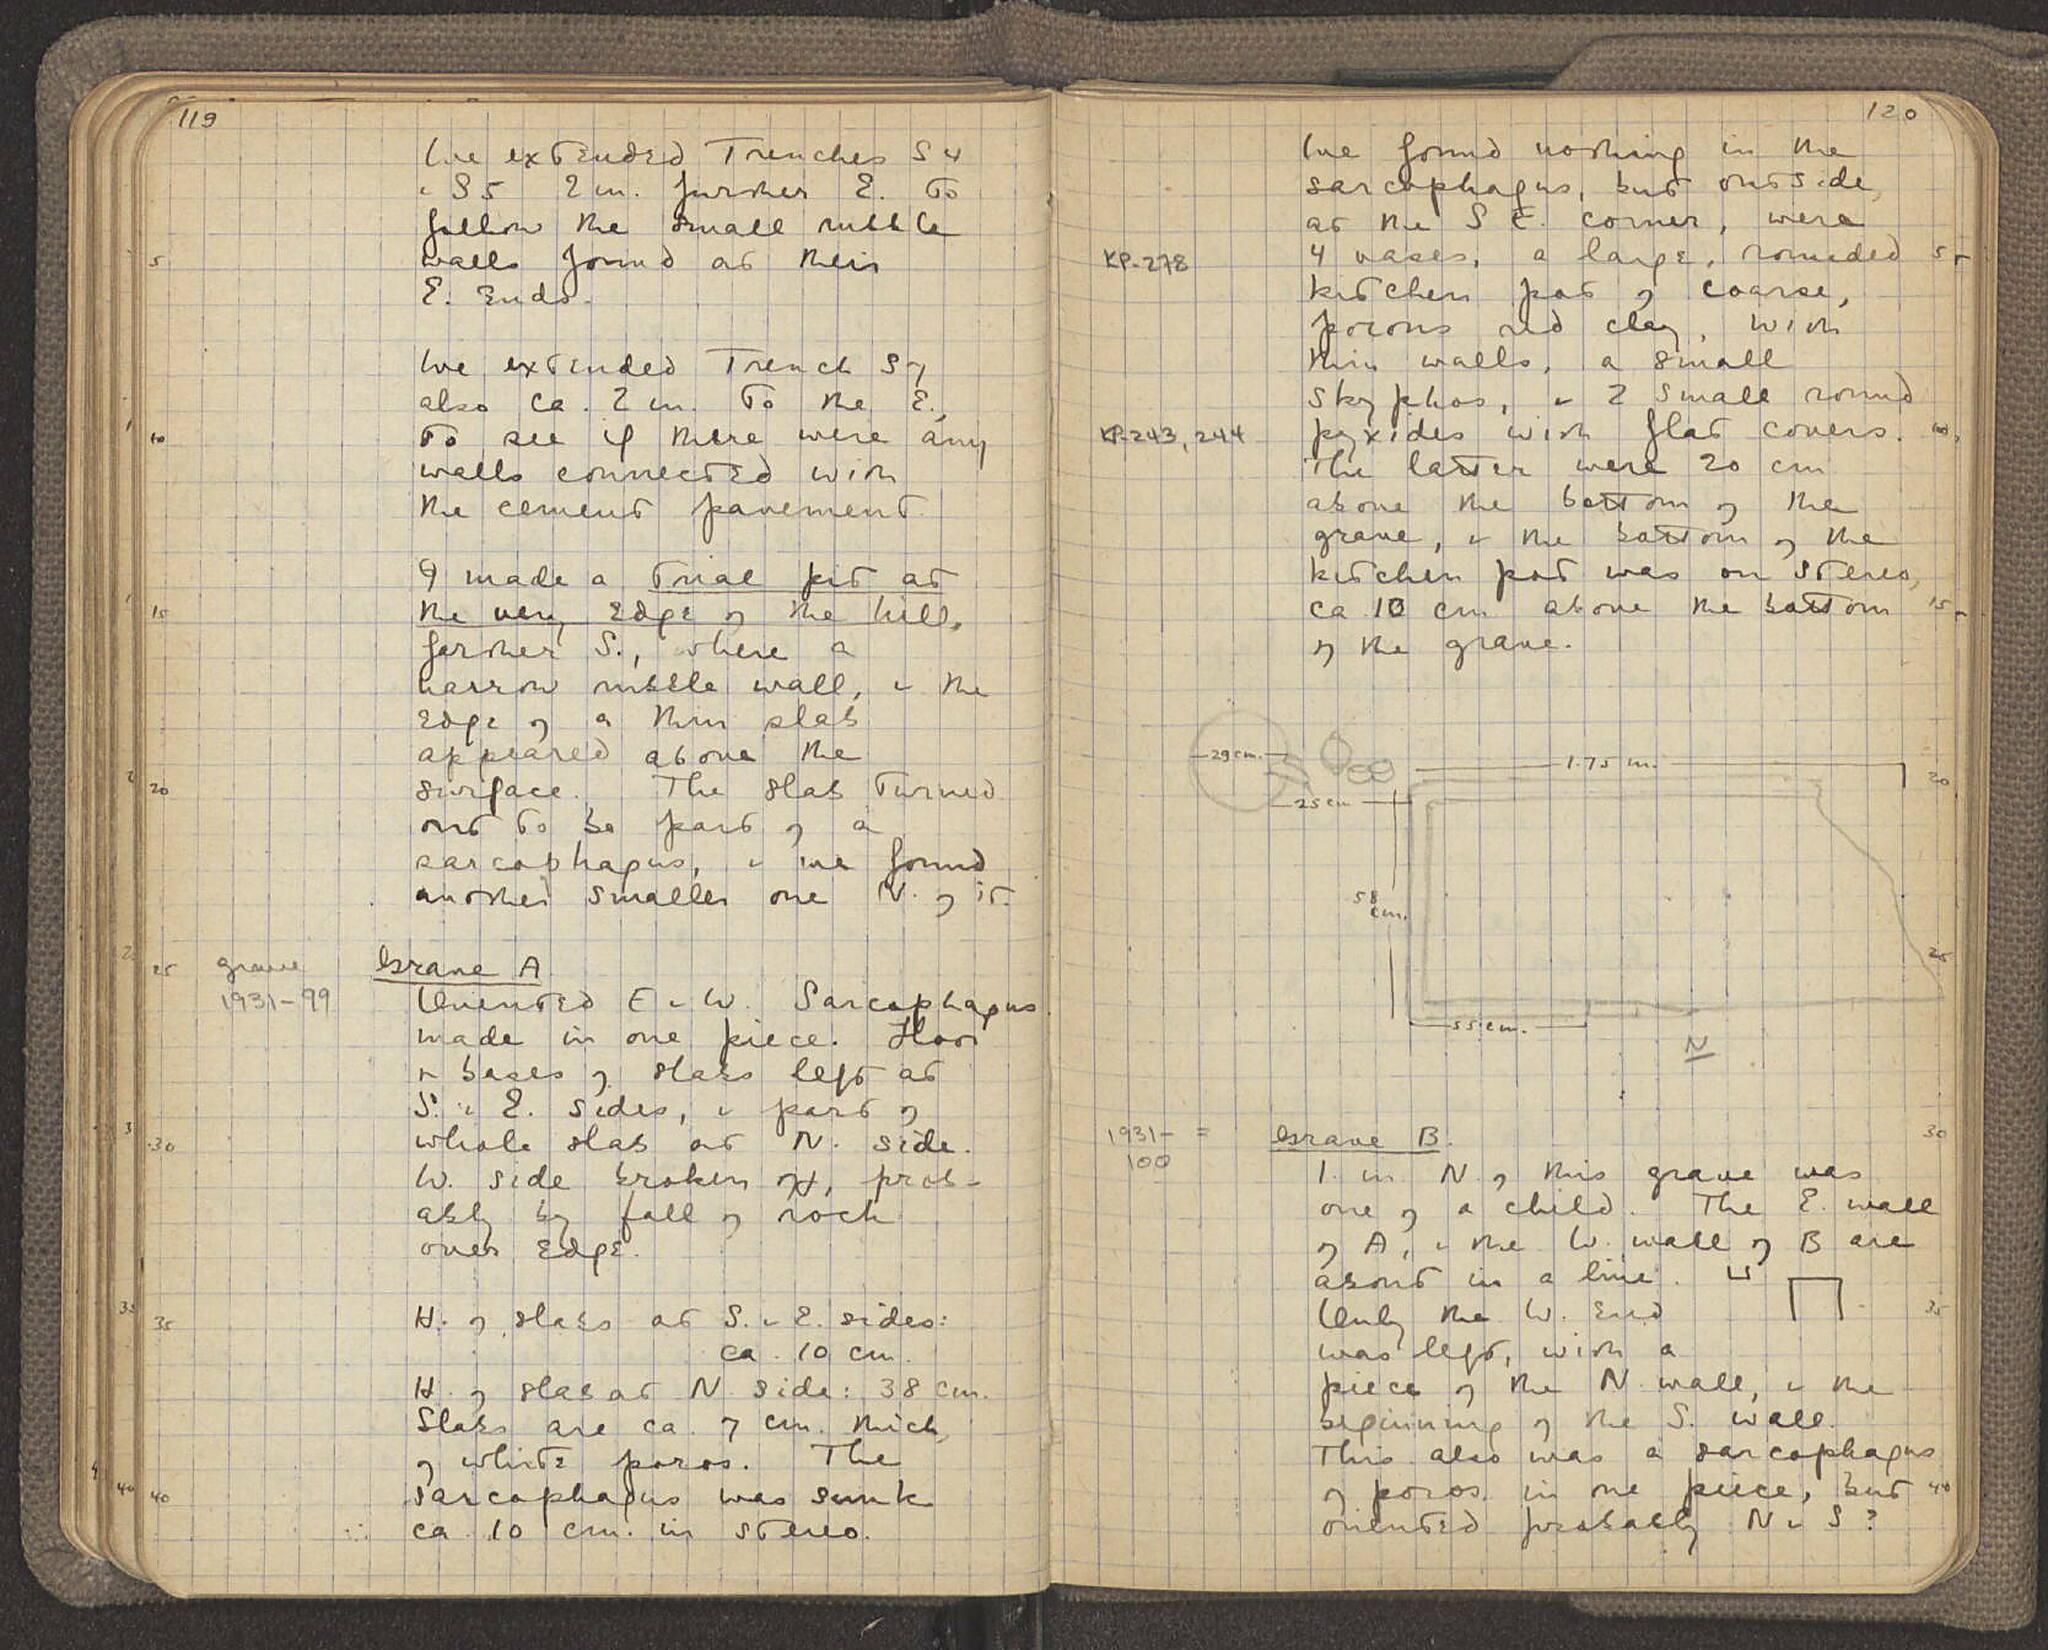 119
We extended Trenches S4
& S5 2 m. further E. to
follow the small rubble
5 walls found at their
E. ends.
We extended Trench S7
also ca. 2 m. to the E.,
10 to see if there were any
walls connected with
the cement pavement.
I made a trial pit at
15 the very edge of the hill,
farther S., where a
narrow rubble wall, & the
edge of a thin slab
appeared above the
20 surface. The slab turned
out to be part of a
sarcophagus, & we found
another smaller one N. of it.
25 grave Grave A
1931-99 Oriented E & W. Sarcophagus
made in one piece. Floor
& bases of slabs left at
S. & E. sides, & part of
30 whole slab at N. side.
W. side broken off, prob-
ably by fall of rock
over edge.
35 H. of slabs at S. & E. sides:
ca. 10 cm.
H. of slab at N. side: 38 cm.
Slabs are ca. 7 cm. thick,
of white poros. The
40 sarcophagus was sunk
ca. 10 cm. in stereo.
120
We found nothing in the
sarcophagus, but outside,
at the S E. corner, were
KP-278 4 vases, a large, rounded 5
kitchen pot of coarse,
porous red clay, with
thin walls, a small
skyphos, & 2 small round
KP-243, 244 pyxides with flat covers. 10
The latter were 20 cm
above the bottom of the
grave, & the bottom of the
kitchen pot was on stereo,
ca 10 cm above the bottom 15
of the grave.
29 cm. 1.75 m. 20
25 cm
58
cm.
25
55 cm.
N
1931- = Grave B. 30
100 1 m N. of this grave was
one of a child. The E. wall
of A, & the W. wall of B are
about in a line.
Only the W. end 35
was left, with a
piece of the N. wall, & the
beginning of the S. wall.
This also was a sarcophagus
of poros in one piece, but 40
oriented probably N & S?